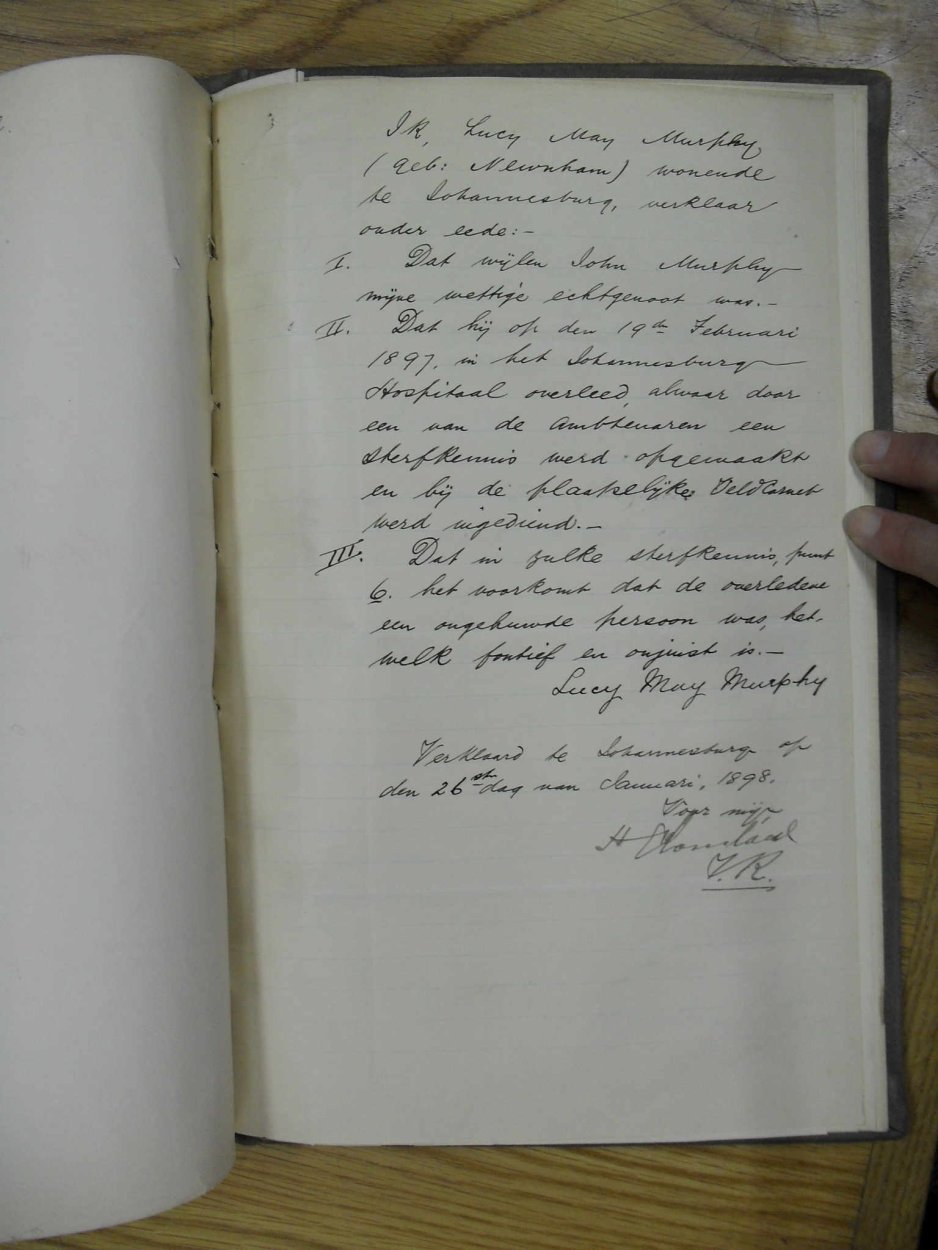 Ik, Lucy May Murphy
(geb: Newnham) wonende
te Johannesburg, verklaar
onder eede:-
I. Dat wijlen John Murphy
mijne wettige echtgenoot was.-
II. Dat hij op den 19de Februari
1897, in het Johannesburg
Hospitaal overleed, alwaar door
een van de ambtenaren een
sterfkennis werd opgemaakt
en bij de plaatselijke Veldcornet
werd ingediend.-
III. Dat in zulke sterfkennis, punt
6. het voorkomt dat de overledene
een ongehuwde persoon was, het-
welk foutief en onjuist is.-
Lucy May Murphy
Verklaard te Johannesburg op
den 26st dag van Januari, 1898.
Voor mij,
H
V.R.